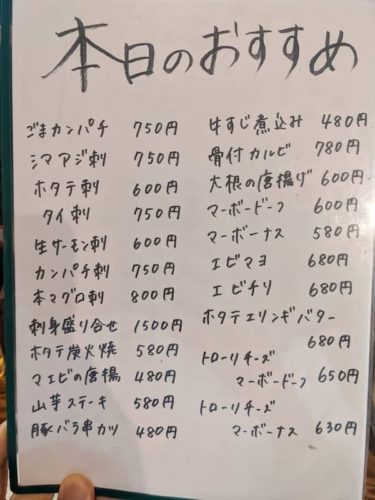 本日のおすすめ
ごまカンパチ 750円
シマアジ刺 750円
ホタテ刺 600円
タイ刺 750円
生サーモン刺 600円
カンパチ刺 750円
本マグロ刺 800円
刺身盛り合せ 1500円
ホタテ炭火焼 580円
マエビの唐揚 480円
山芋ステーキ 580円
豚バラ串カツ 480円
牛すじ煮込み 480円
骨付カルビ 780円
大根の唐揚げ 600円
マーボードーフ 600円
マーボーナス 580円
エビマヨ 680円
エビチリ 680円
ホタテエリンギバター
680円
トローリチーズ
マーボードーフ 650円
トローリチーズ
マーボーナス 630円